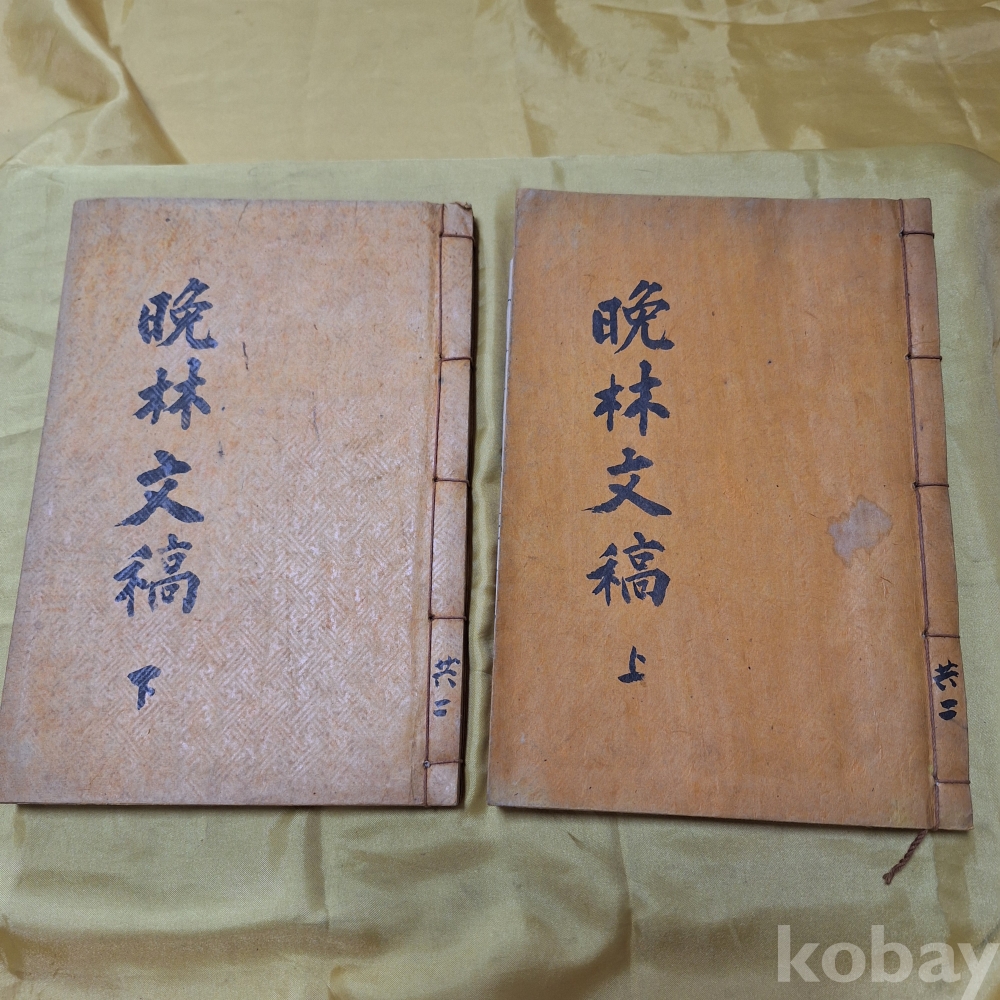 晩林文稿
上
共二
晩林文稿
下
共二
kobay